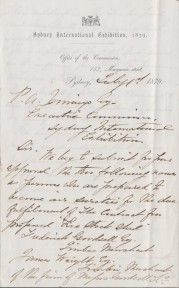 Sydney International Exhibition, 1879.
Office of the Commission,
Macquarie street,
Sydney, July 1st 1879
P. A. Jennings Esq
Executive Commissioner
Sydney International
Exhibition
Sir We beg to submit for your
approval the two following names
as persons who are prepared to
become our Securities for the due
fulfilment of the Contract for
proposed
Frederick Goodsell Esq
Timber Merchant
James Wright Esq
Timber Merchant
of the firm of Messrs